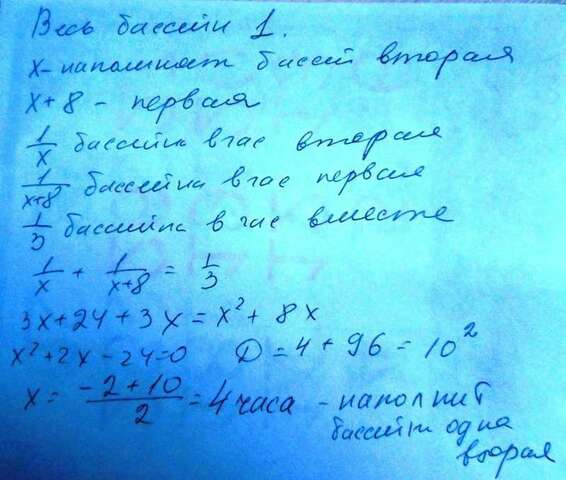 Весь бассейн 1.
x - наполнит бассейн вторая
x+8 - первая
1/x бассейна в час вторая
1/(x+8) бассейна в час первая
1/3 бассейна в час вместе
1/x + 1/(x+8) = 1/3
3x+24+3x = x² + 8x
x²+2x-24=0 D = 4+96 = 10²
x = (-2+10)/2 = 4 часа - наполнит
бассейн одна
вторая